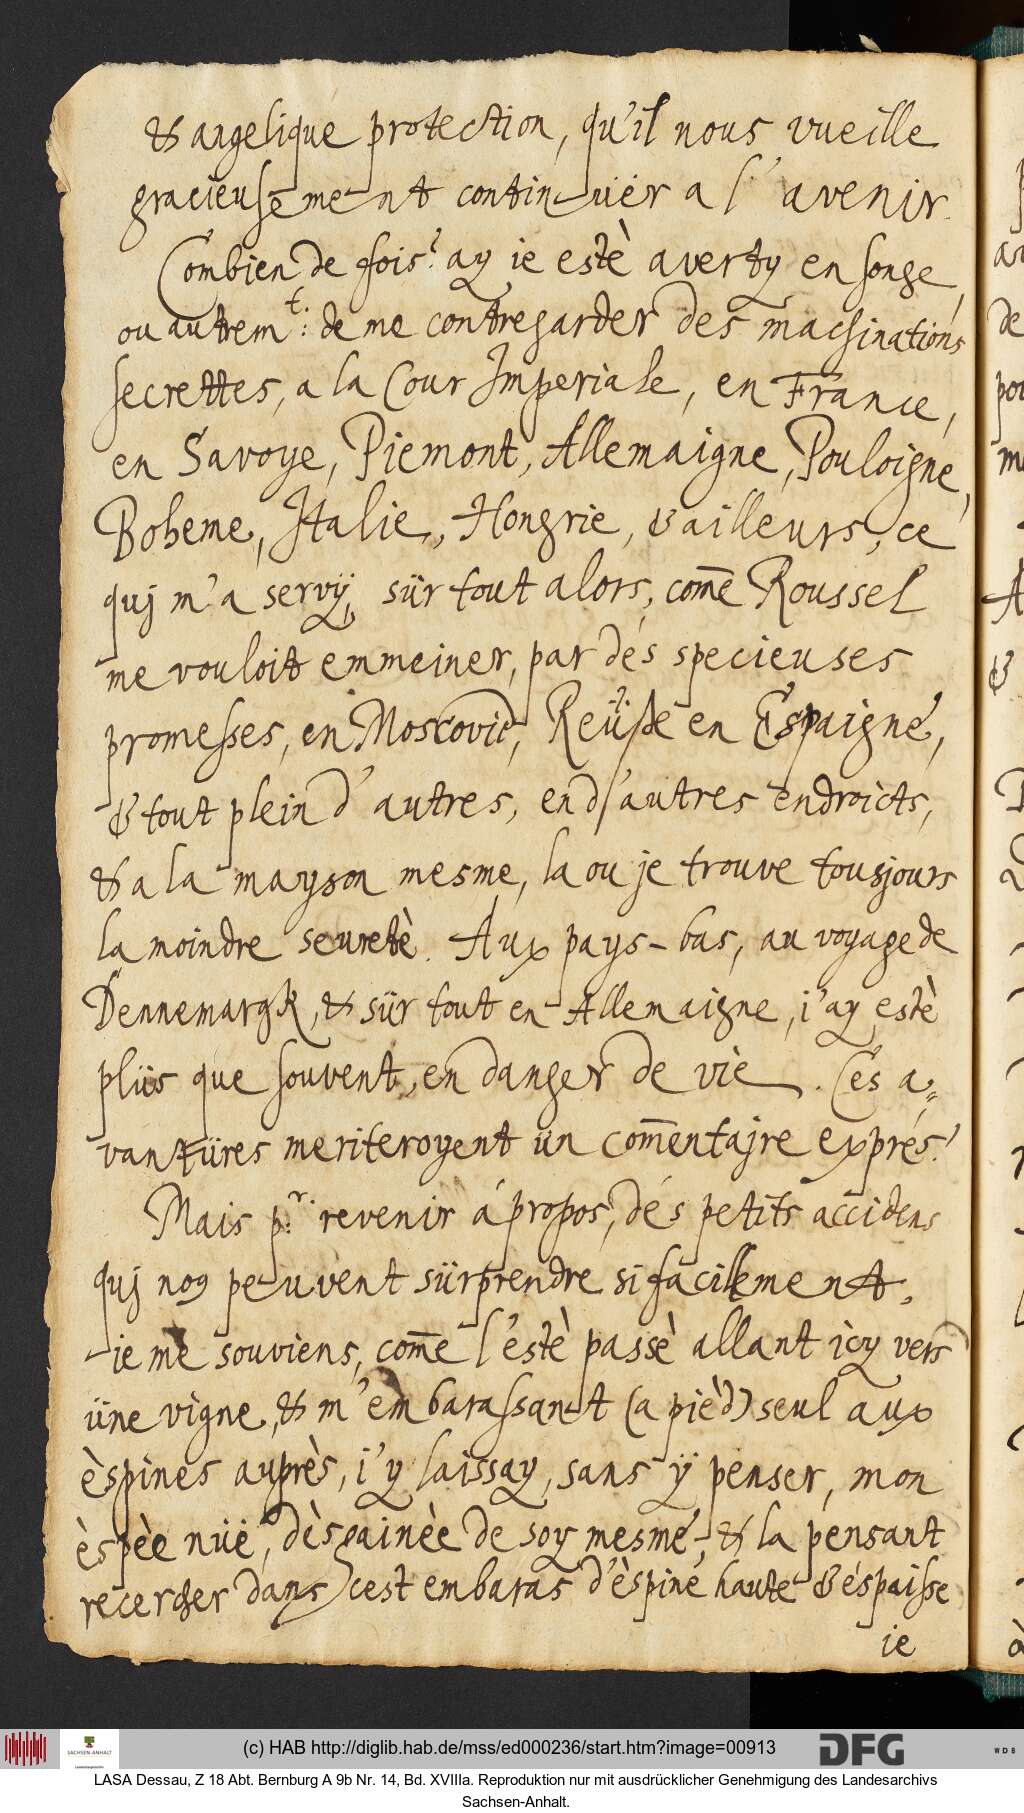 & angelique protection, qu'il nous vueille
gracieusement continuër a l'avenir.
Combien de fois? ay ie estè averty en songe,
ou autrem^t: de me contregarder des machinations
secrettes, a la Cour Imperiale, en France,
en Savoye, Piemont, Allemaigne, Pouloigne,
Boheme, Italie, Hongrie, & ailleurs, ce
quj m'a servÿ, sür tout alors, com̅e Roussel
me vouloit emmeiner, par dés specieuses
promesses, en Moscovie, Reüße en Espaigne,
& tout plein d'autres, en d'autres endroicts,
& a la mayson mesme, la ou je trouve tousjours
la moindre seuretè. Aux pays-bas, au voyage de
Dennemargk, & sür tout en Allemaigne, i'ay estè
plüs que souvent, en danger de vie. Ces a,,
vantüres meriteroyent ün com̅entajre exprés!
Mais p^r: revenir á propos, dés petits accidens
quj no9 peuvent sürprendre si facillement,
ie me souviens, com̅e l'estè passè allant icy vers
üne vigne, & m'embarassant (a pièd) seul aux
èspines auprès, i'y laissay, sans ÿ penser, mon
èspèe nüe, dèsgainèe de soy mesme, & la pensant
recercher dans cest embaras d'èspine haute & éspaisse
ie
(c) HAB http://diglib.hab.de/mss/ed000236/start.htm?image=00913
SACHSEN-ANHALT
DFG
WDB
LASA Dessau, Z 18 Abt. Bernburg A 9b Nr. 14, Bd. XVIIIa. Reproduktion nur mit ausdrücklicher Genehmigung des Landesarchivs
Sachsen-Anhalt.